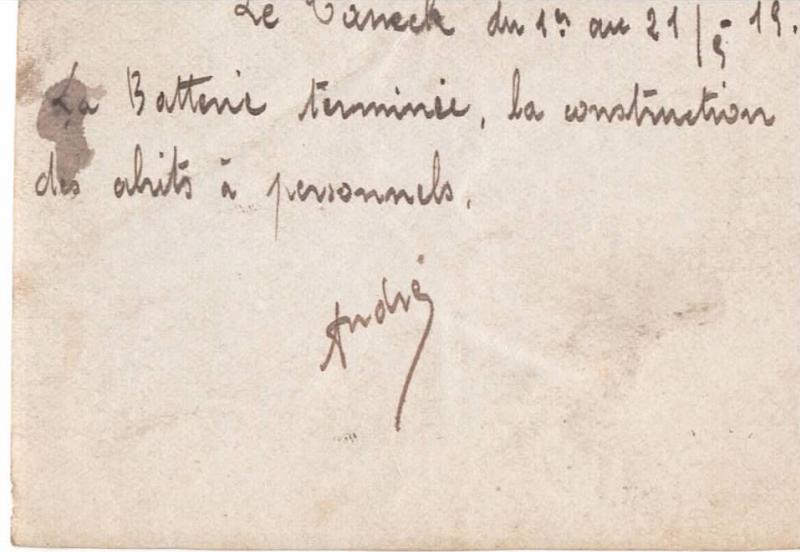 Le Casseck du 1er au 21/5-19.
La Batterie terminée, la construction
des abrits à personnels.
André